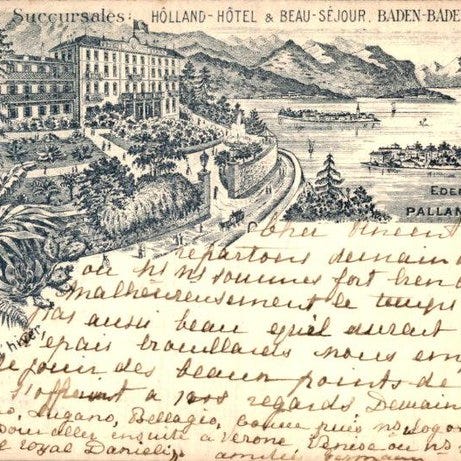 Succursales: HÔLLAND-HÔTEL & BEAU-SÉJOUR, BADEN-BADE
EDEN
PALLAN
Cher Vincent
repartons demain
ou ns ns sommes fort
Malheureusement le temps
pas aussi beau qu'il aurait
epais brouillards nous em
de jouir des beaux points de
hiver
s'offrent à nos regards Demain
Lugano, Bellagio, Come puis ns logon
pour aller ensuite à Verone Venise ou ns
Royal Danieli, amitiés